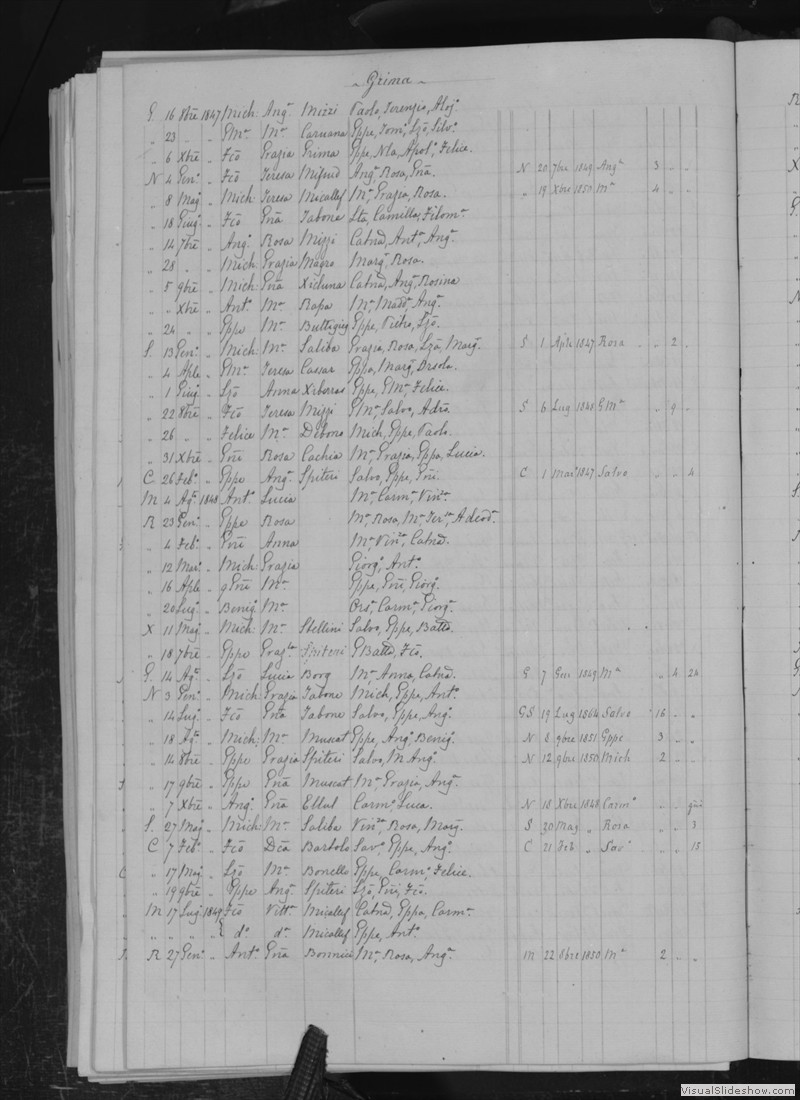 Grima
G. 16 8bre 1847 Mich: Ang.a Mizzi Paolo, Terenzio, Aloj.
" 23 " " GM.a M.a Caruana Gppe, Tom.o, Lzo, Silv.o
" 6 Xbre " Fco Grazia Grima Gppe, Nla, Apol.a, Felice.
N 4 Gen.o " Fco Teresa Mifsud Ang.a, Rosa, Gña. N 20 7bre 1849 Ang.a 3 " "
" 8 Mag.o " Mich: Teresa Micallef M.a, Grazia, Rosa. " 19 Xbre 1850 M.a 4 " "
" 18 Giug.o " Fco Gña Tabone Lta, Camilla, Filom.a
" 14 7bre " Ang.o Rosa Mizzi Catnã, Ant.a, Ang.a
" 28 " " Mich: Grazia Magro Marg.a, Rosa.
" 5 9bre " Mich: Gña Xicluna Catnã, Ang.a, Rosina
" " Xbre " Ant.o M.a Rapa M.a, Madd.a, Ang.a
" 24 " " Gppe M.a Buttigieg Gppe, Pietro, Lzo.
S. 13 Gen.o " Mich: M.a Saliba Grazia, Rosa, Lza, Marg.a S 1 Aple 1847 Rosa " 2 "
" 4 Aple " GM.a Teresa Cassar Gppa, Marg.a, Orsola.
" 1 Giug.o " Lzo Anna Xiberras Gppe, GM.a, Felice.
" 22 8bre " Fco Teresa Mizzi GM.a, Salvo, Adrõ. S 6 Lug 1848 GM.a " 9 "
" 26 " " Felice M.a Debono Mich, Gppe, Paolo.
" 31 Xbre " Gñi Rosa Cachia M.a, Grazia, Gppa, Lucia.
C 26 Feb.o " Gppe Ang.a Spiteri Salvo, Gppe, Gñi. C 1 Mar.o 1847 Salvo " " 4
M 4 Ag.o 1848 Ant.o Lucia M.a, Carm.a, Vin.za
R 23 Gen.o " Gppe Rosa M.a, Rosa, M.a Ter.sa, Adeod.a
" 4 Feb.o " Gñi Anna M.a, Vin.za, Catnã.
" 12 Mar.o " Mich: Grazia Giorg.o, Ant.o
" 16 Aple " gGñi M.a Gppe, Gñi, Giorg.o
" 20 Lug.o " Benig.o M.a Ors.a, Carm.a, Giorg.a
X 11 Mag.o " Mich: M.a Stellini Salvo, Gppe, Battã.
" 18 7bre " Gppe Graz.la Spiteri GBattã, Fco.
G. 14 Ag.o " Lzo Lucia Borg M.a, Anna, Catnã. G 7 Gen 1849 M.a " 4 24
N 3 Gen.o " Mich: Grazia Tabone Mich, Gppe, Ant.o
" 14 Lug.o " Fco Gña Tabone Salvo, Gppe, Ang.o GS 19 Lug 1864 Salvo 16 " "
" 18 Ag.o " Mich: M.a Muscat Gppe, Ang.o, Benig.o N 8 9bre 1851 Gppe 3 " "
" 14 8bre " Gppe Grazia Spiteri Salvo, M.Ang.o N 12 9bre 1850 Mich 2 " "
" 17 9bre " Gppe Gña Muscat M.a, Grazia, Ang.a
" 7 Xbre " Ang.o Gña Ellul Carm.o, Luca. N 18 Xbre 1848 Carm.o " "
S. 27 Mag.o " Mich: M.a Saliba Vin.za, Rosa, Marg.a S 30 Mag " Rosa " " 3
C 7 Feb.o " Fco Dca Bartolo Sav.o, Gppe, Ang.o C 21 Feb " Sav.o " " 15
" 17 Mag.o " Lzo M.a Bonello Gppe, Carm.o, Felice.
" 19 9bre " Gppe Ang.a Spiteri Lzo, Gñi, Fco.
M 17 Lug.o 1849 Fco Vitt.a Micallef Catnã, Gppa, Carm.a
" " " " { d.o d.a Micallef Gppe, Ant.o
R 27 Gen.o " Ant.o Gña Bonnici M.a, Rosa, Ang.a M 22 8bre 1850 M.a 2 " "
VisualSlideshow.com